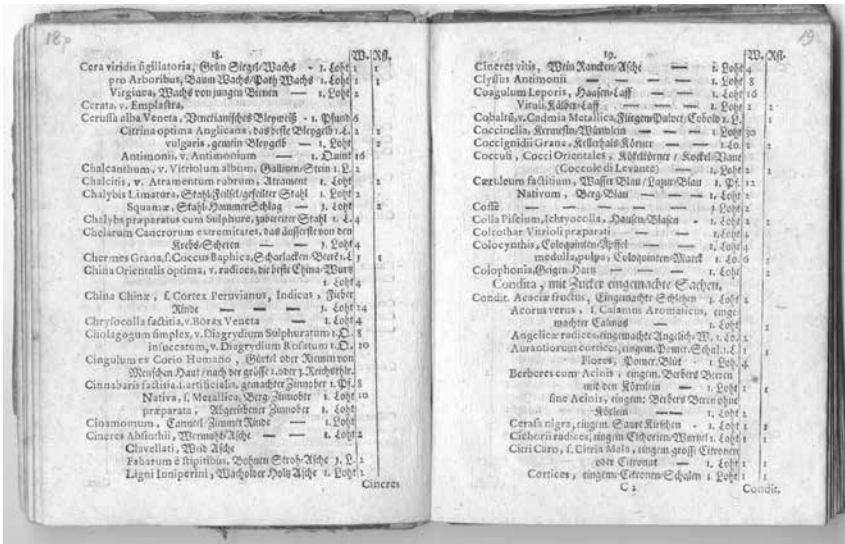 18p
18.
W. Rſt.
Cera viridis ſigillatoria, Grün Siegel/Wachs - 1. Loht 1 1
pro Arboribus, Baum Wachs/Path Wachs 1. Loht 1 1
Virginea, Wachs von jungen Bienen — 1. Loht 2
Cerata, v. Emplaſtra,
Ceruſſa alba Veneta, Venetianiſches Bleyweiß - 1. Pfund 6
Citrina optima Anglicana, das beſte Bleygelb 1. L. 2 1
vulgaris, gemein Bleygelb — 1. Loht 2
Antimonii, v. Antimonium — 1. Quint 16
Chalcanthum, v. Vitriolum album, Gallitzen/Stein 1. L. 2
Chalcitis, v. Atramentum rubrum, Atrament 1. Loht 2
Chalybis Limatura, Stahl/Feilſel/gefeilter Stahl 1. Loht 2
Squamæ, Stahl/HammerSchlag — 1. Loht 2
Chalybs præparatus cum Sulphure, zubereiter Stahl 1. L. 4
Chelarum Cancrorum extremitates, das äuſſerſte von den
Krebs/Scheren — — 1. Loht 4
Chermes Grana, ſ. Coccus Baphica, Scharlacken/Beere 1. L 3 1
China Orientalis optima, v. radices, die beſte China-Wurtz
1. Loht 4
China Chinæ, ſ. Cortex Peruvianus, Indicus, Fieber
Rinde — — 1. Loht 14
Chryſocolla factitia, v. Borax Veneta — 1. Loht 4
Cholagogum ſimplex, v. Diagrydium Sulphuratum 1. Q. 8
infuccatum, v. Diagrydium Roſatum 1. Q. 10
Cingulum ex Corio Humano, Gürtel oder Riemen von
Menſchen Haut/nach der gröſſe 1. oder 3. Reichsthlr.
Cinnabaris factitia, ſ. artificialis, gemachter Zinnober 1. Pf. 8
Nativa, ſ. Metallica, Berg/Zinnober 1. Loht 10
præparata, Abgeriebener Zinnober 1. Loht
Cinamomum, Canneel/Zimmet Rinde — 1. Loht
Cineres Abſinthii, Wermuht/Aſche — — 1. Loht 2
Clavellati, Weid Aſche
Fabarum è ſtipitibus, Bohnen Stroh/Aſche 1. L. 2
Ligni Juniperini, Wacholder Holtz Aſche 1. Loht 2
Cineres
19.
19.
W. Rſt.
Cineres vitis, Wein Rancken/Aſche — 1. Loht 4
Clyſſus Antimonii — — — — 1. Loht 8
Coagulum Leporis, Haaſen/Laff — — 1. Loht 16
Vituli, Kälber/Laff — — — 1. Loht 2 2
Cobaltũ, v. Cadmia Metallica, Fliegen/Pulver/Cobold 1. L. 1
Coccinella, Kermeſin/Würmlein — — 1. Loht 20
Coccignidii Grana, Kellerhals/Körner — 1. Lo. 2 1
Cocculi, Cocci Orientales,
(Coccole di Levante) — 1. Loht 2
Cæruleum factitium, Waſſer Blau/Lazur/Blau 1. Pf. 12
Nativum, Berg/Blau — — 1. Loht 2
Coffè — — — — 1. Loht 2
Colla Piſcium, Ichtyocolla, Hauſen/Blaſen - 1. Loht 2 2
Colcothar Vitrioli præparati — — 1. Loht 4
Colocynthis, Coloquinten/Äpffel — — 1. Loht 4
medulla, pulpa, Coloquinten/Marck 1. Lo. 6 2
Colophonia, Geigen/Hartz — — 1. Loht 2
Condita, mit Zucker eingemachte Sachen,
Condit. Acaciæ fructus, Eingemachte Schlehen 1. Loht 2
Acorus verus, ſ. Calamus Aromaticus, einge
machter Calmus — 1. Loht 2
Angelicæ radices, eingemachte Angelick/W. 1. Lo. 2
Aurantiorum cortices, eingem. Pomer. Schal. 1. L. 1
Flores, Pomer. Blüt - 1. Loh. 4
Berberes cum Acinis, eingem. Berbers Beeren
mit den Körnlein — 1. Loht 1 1
ſine Acinis, eingem. Berbers Beern ohne
Körlein — — 1. Loht 2
Ceraſa nigra, eingem. Saure Kirſchen - 1. Loht 1 1
Cichorii radices, eingem Cichorien/Wurtzel 1. Loht 1 1
Citri Caro, ſ. Citria Mala, eingem groſſ. Citronen
oder Citronat — 1. Loht 1 1
Cortices, eingem. Citronen/Schalen 1. Loht 1 1
C 2 Condit.